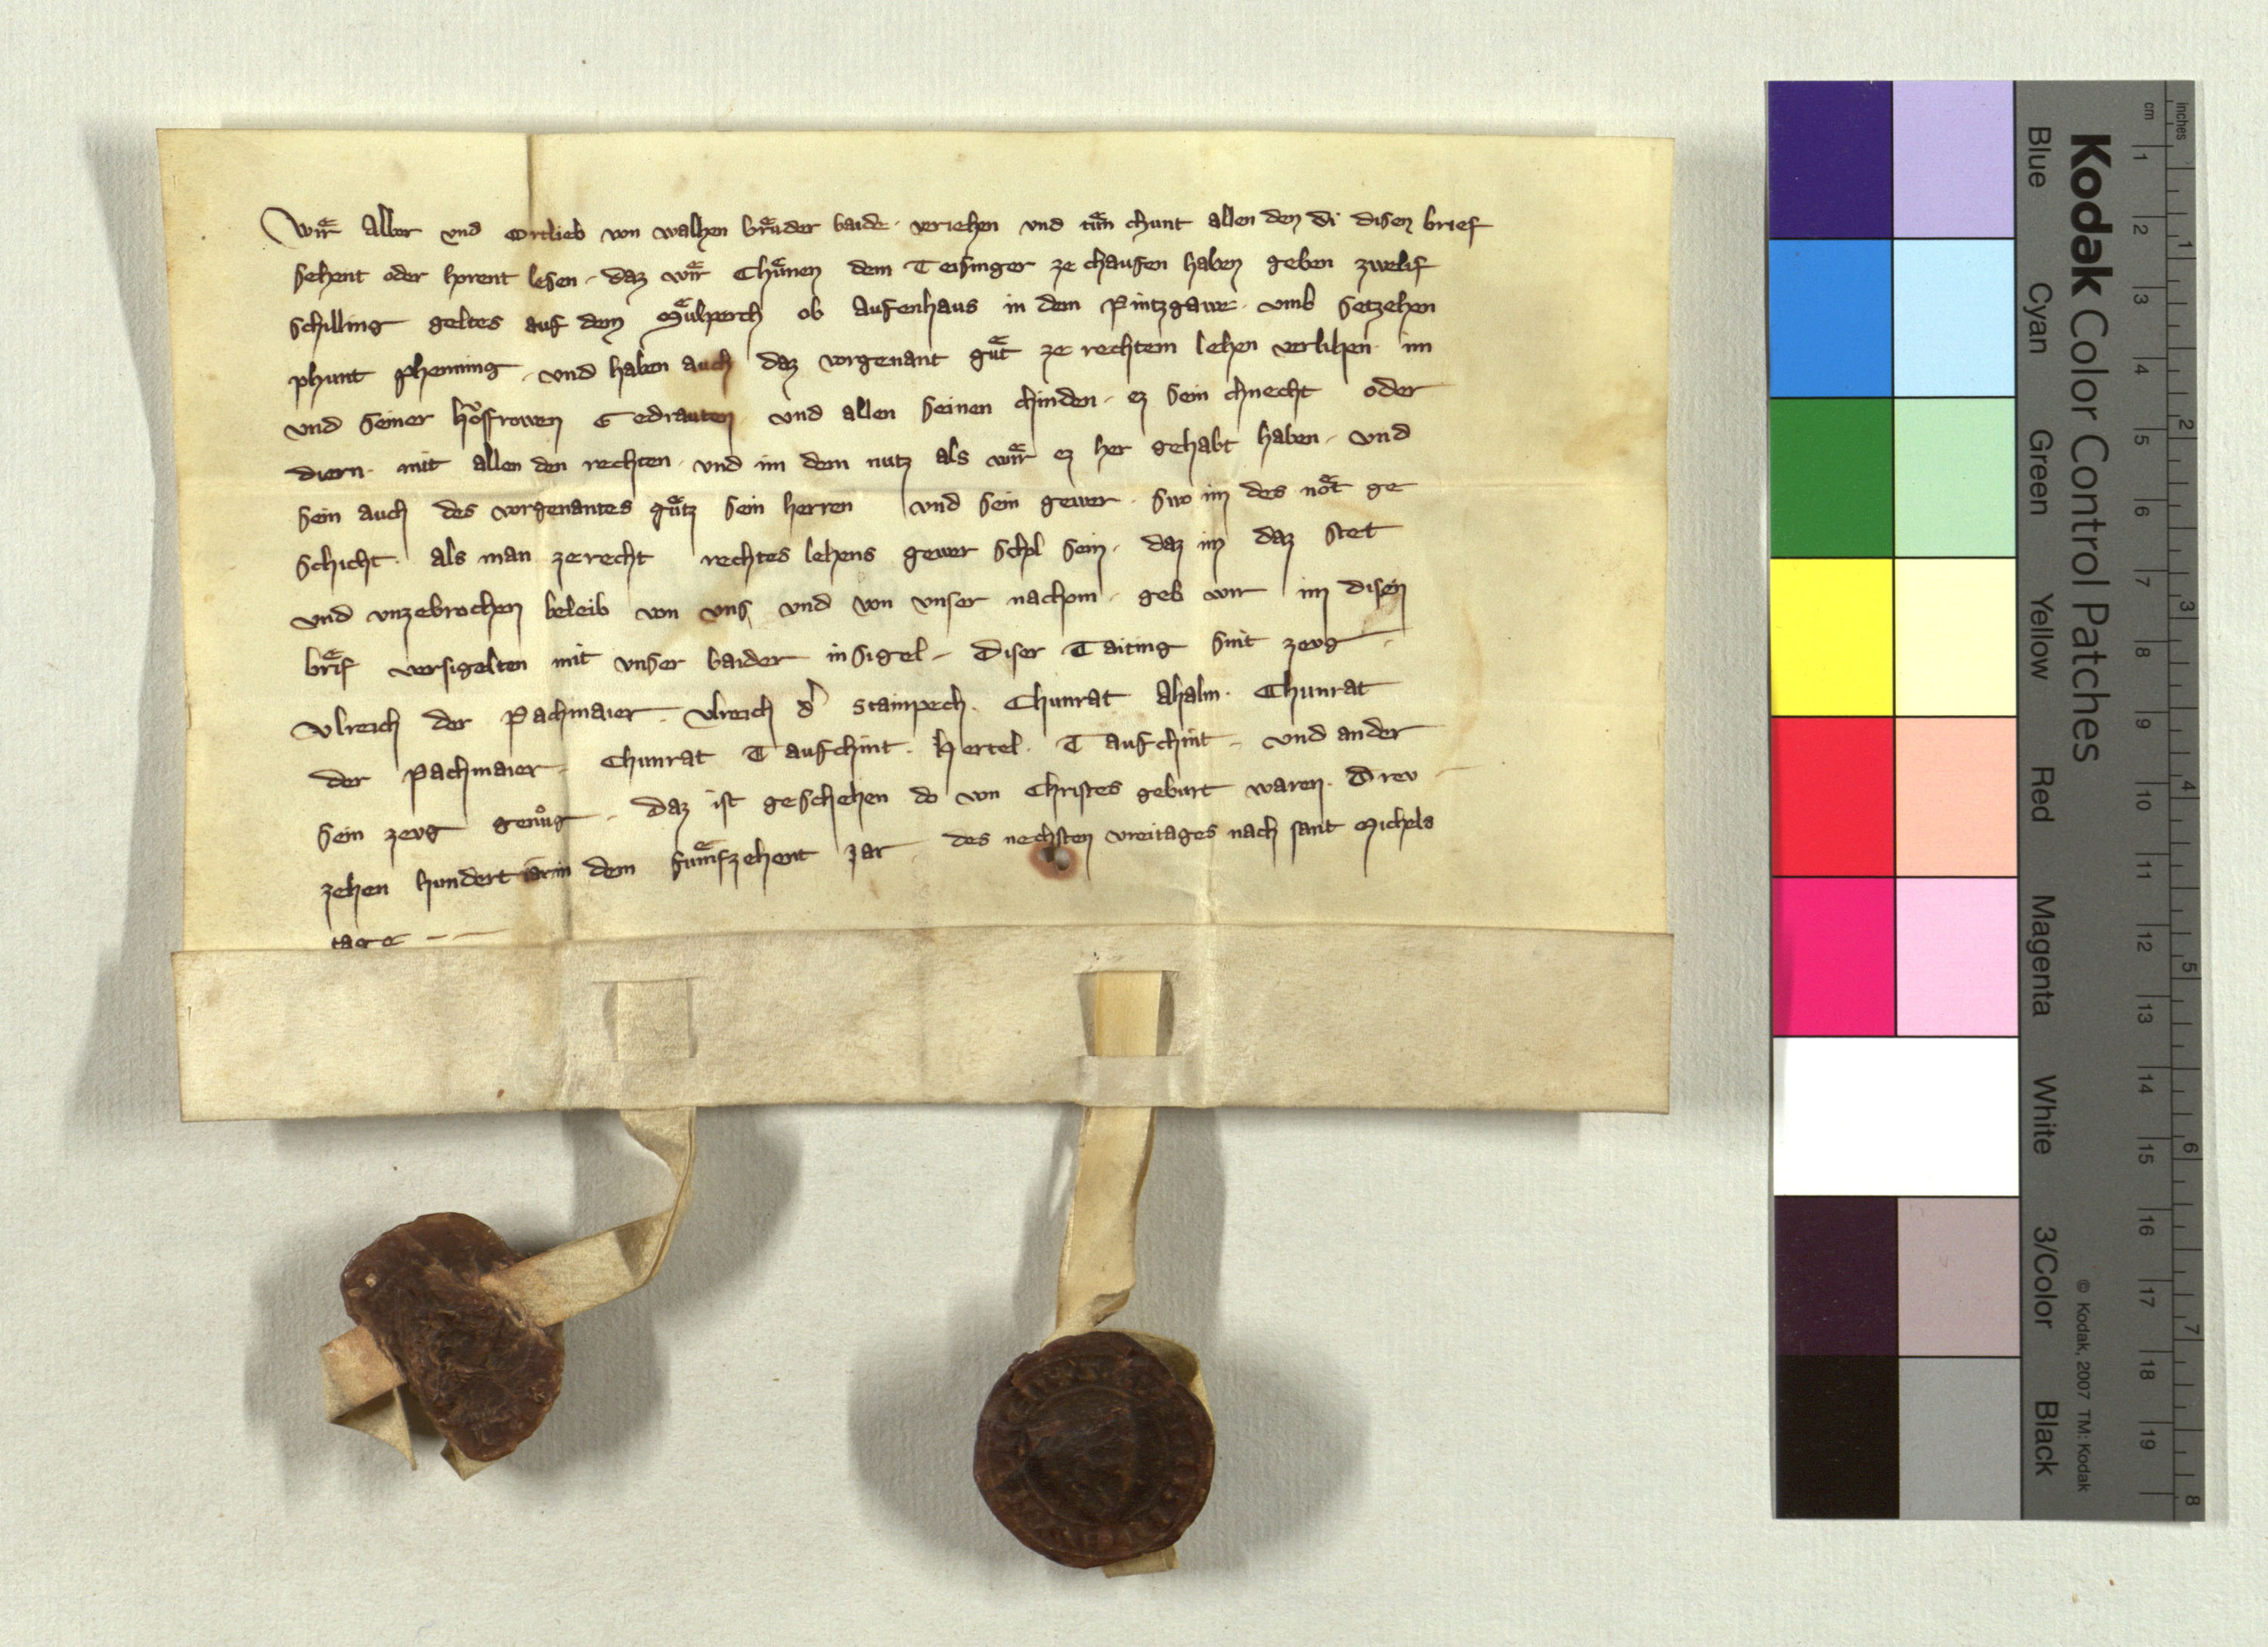 Wiͤr Alber vnd Ortlieb von walhen bruͤder baide · veriehen vnd tuͤn chunt allen den di disen brief
sehent oder horent lesen · daz wiͤr Chuͤnen dem Teisinger ze chaufen haben geben zwelif
schilling geltes auf dem Muͤlperch ob Aufenhaus in dem Pintzgawe · vmb setzehen
phunt phenning · vnd haben auch daz vorgenant guͤt ze rechtem lehen verlihen im
vnd seiner hosfrowen Gedrauten vnd allen seinen chinden · ez sein chnecht oder
diern · mit allen den rechten · vnd im dem nutz als wiͤr ez her gehabt haben · vnd
sein auch des vorgenantes guͤtz sein herren vnd sein gewer · swo im des noͤt ge
schicht · als man ze recht rechtes lehens gewer schol sein · daz im daz stet
vnd vnzebrochen beleib von vns vnd von vnser nachom · geb wir im disen
briͤf versigelten mit vnser baider insigel – Diser Taiting sint zevg
Vlreich der Pachmaier · Vlreich d' Stainpech · Chunrat Ahalm · Chunrat
der Pachmaier – Chunrat Taufchint · Hertel · Taufchint – vnd ander
sein zevg genuͦg – daz ist geschehen do von Christes geburt waren · Drev
zehen hundert iar in dem fumͤfzehent Jar · des nechsten vreitages nach sant Michels
tage
Kodak Color Control Patches
Blue Cyan Green Yellow Red Magenta White 3/Color Black
© Kodak, 2007 TM: Kodak
cm 1 2 3 4 5 6 7 8 9 10 11 12 13 14 15 16 17 18 19
inches 1 2 3 4 5 6 7 8